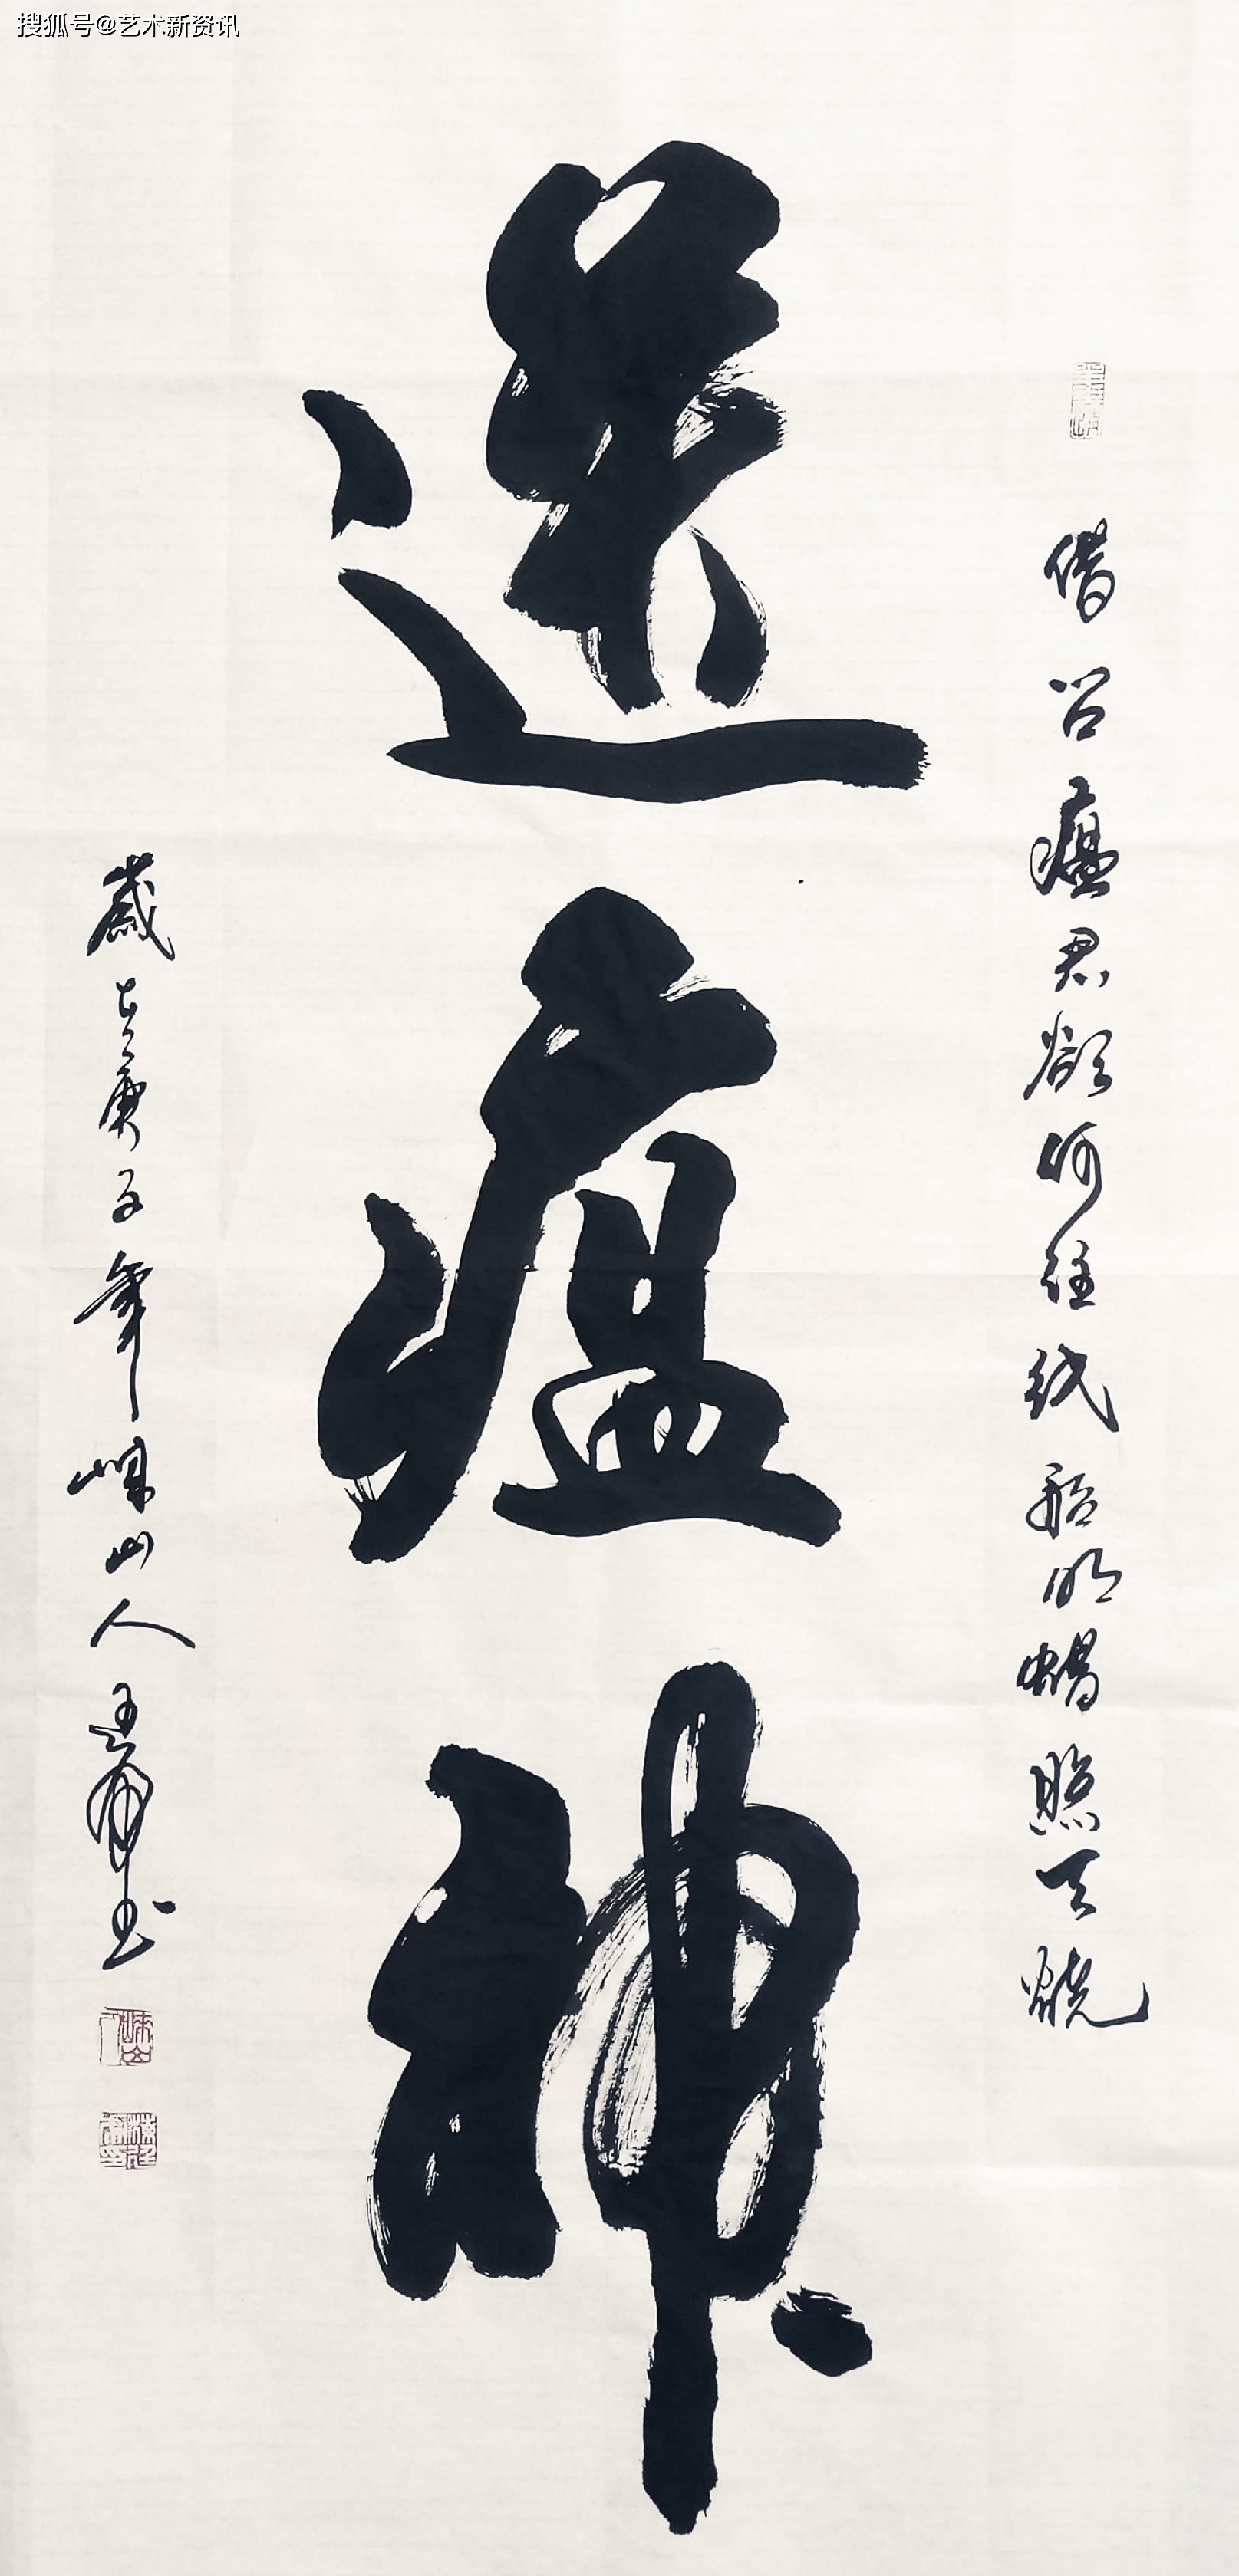 搜狐号@艺术新资讯
借问瘟君欲何往纸船明烛照天烧
送瘟神
岁在庚子年崃山人王庸书